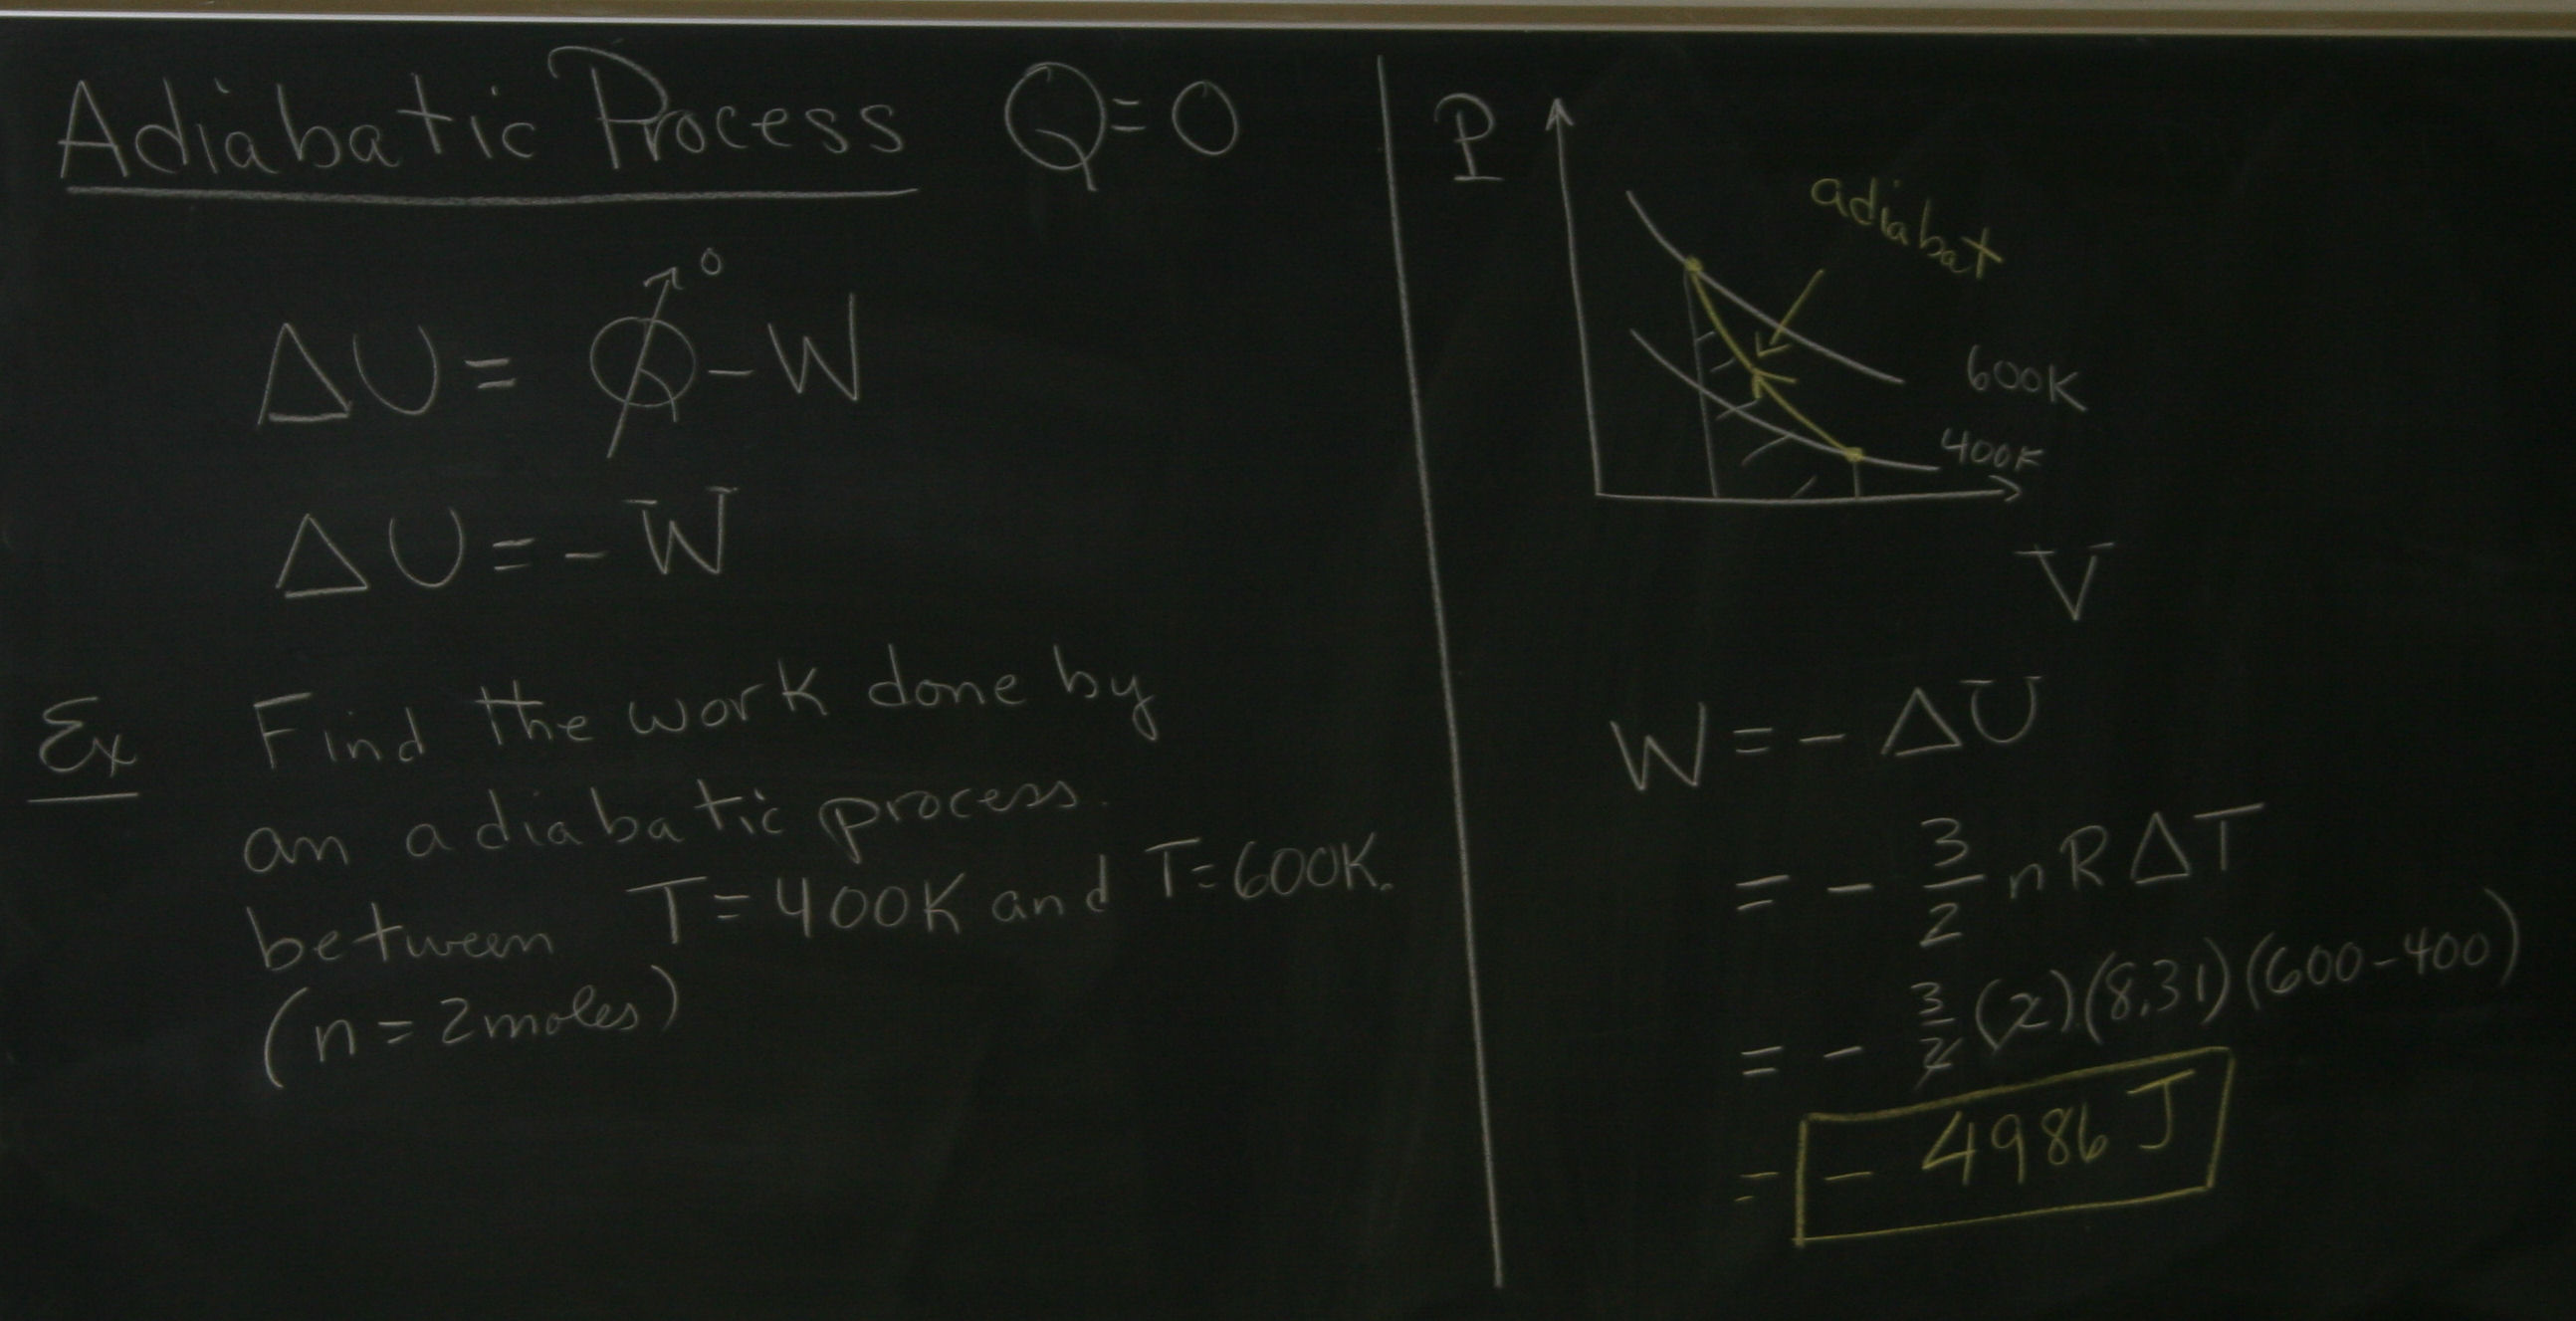 Adiabatic Process Q=0
ΔU = Q⁰ - W
ΔU = - W
Ex Find the work done by
an adiabatic process.
between T=400K and T=600K.
(n=2moles)
P
adiabat
600K
400K
V
W = - ΔU
= - 3/2 nRΔT
= - 3/2 (2)(8.31)(600-400)
= - 4986 J